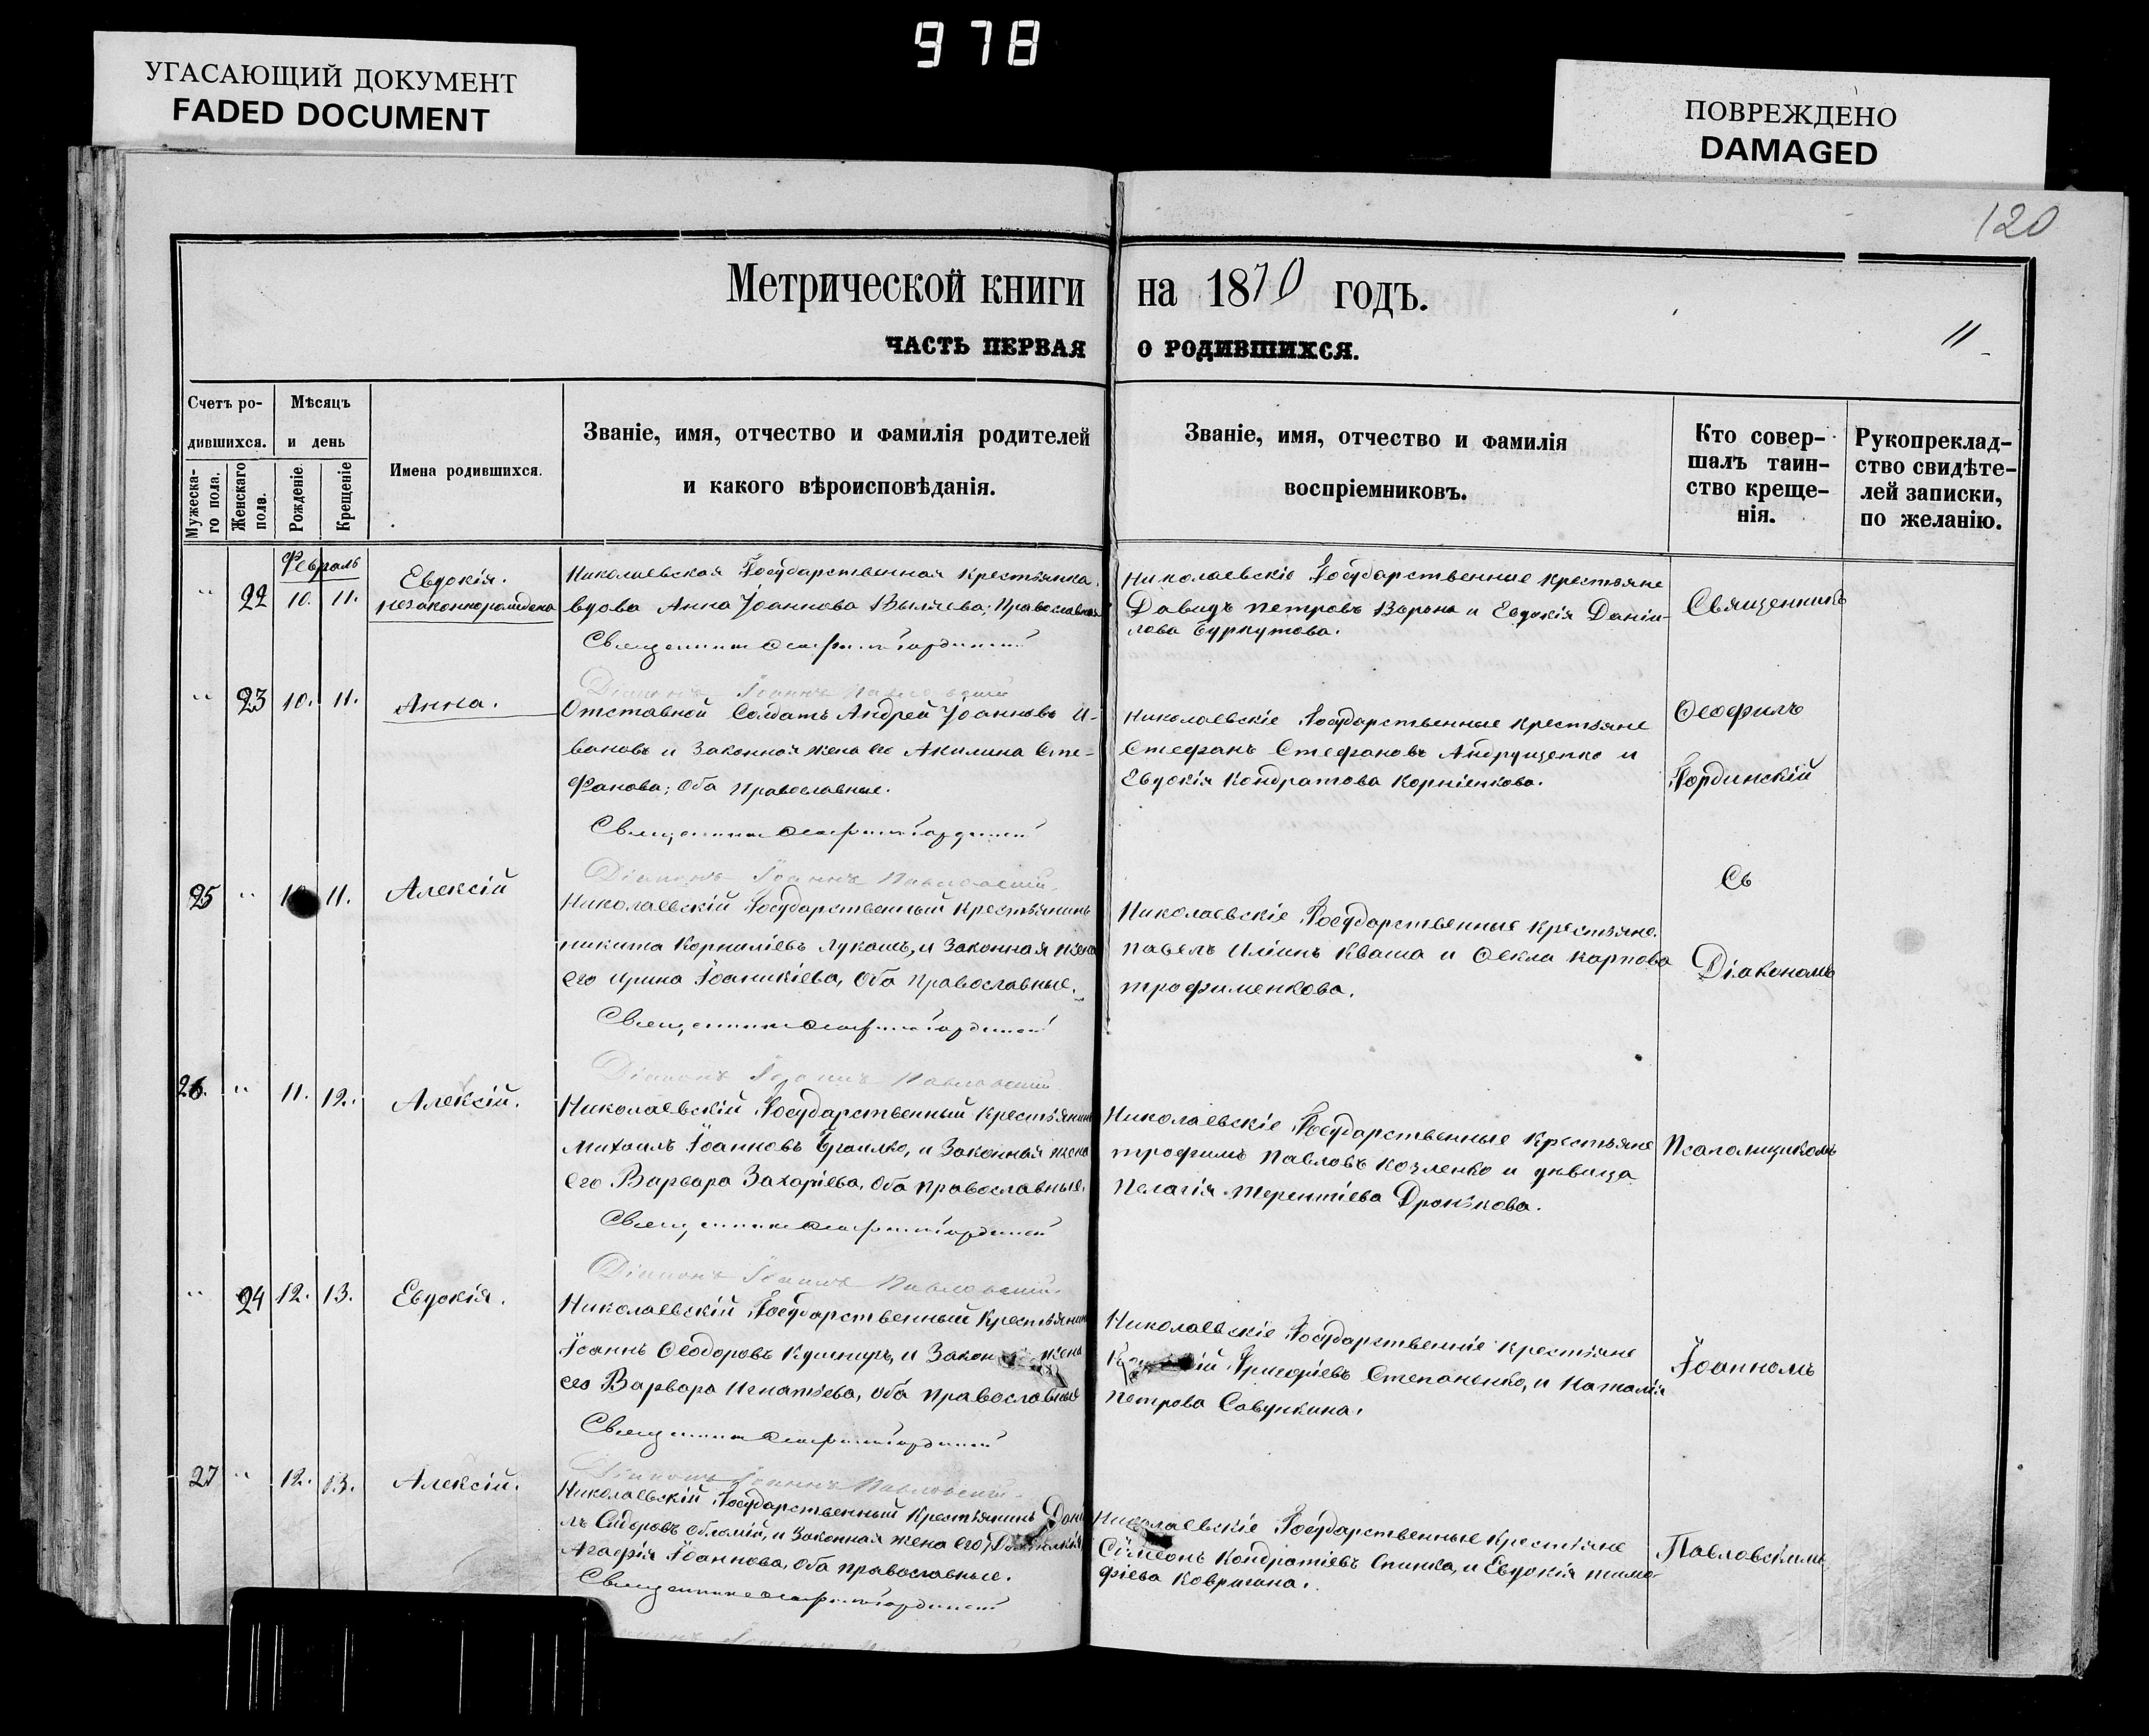 978
УГАСАЮЩИЙ ДОКУМЕНТ
FADED DOCUMENT
ПОВРЕЖДЕНО
DAMAGED
120
Метрической книги на 1870 годъ.
ЧАСТЬ ПЕРВАЯ О РОДИВШИХСЯ.
11
Счетъ ро-
дившихся.
Мужеска-
го пола.
Женскаго
пола.
Мѣсяцъ
и день
Рожденіе.
Крещеніе
Имена родившихся.
Званіе, имя, отчество и фамилія родителей
и какого вѣроисповѣданія.
Званіе, имя, отчество и фамилія
воспріемниковъ.
Кто совер-
шалъ таин-
ство креще-
нія.
Рукопреклад-
ство свидѣте-
лей записки,
по желанію.
Февраль
" 22 10. 11.
Евдокія.
незаконнорождена
Николаевская Государственная крестьянка
вдова Анна Іоаннова; Православная
Священникъ Ѳеофилъ Гординскій
Діаконъ Іоаннъ Павловскій
Николаевскіе Государственные крестьяне
Давидъ Петровъ Ворона и Евдокія Даніи-
лова Буркутова.
" 23 10. 11.
Анна.
Отставной Солдатъ Андрей Іоанновъ И-
вановъ и Законная жена его Акилина Сте-
фанова; Оба Православные.
Священникъ Ѳеофилъ Гординскій
Діаконъ Іоаннъ Павловскій
Николаевскіе Государственные крестьяне
Стефанъ Стефановъ Андрущенко и
Евдокія Кондратова Корніенкова.
25 " 10 11.
Алексій
Николаевскій Государственный Крестьянинъ
Никита Корниліевъ Лукашъ, и Законная жена
его Ирина Іоаникіева, Оба Православные.
Священникъ Ѳеофилъ Гординскій
Діаконъ Іоаннъ Павловскій
Николаевскіе Государственные крестьяне.
Павелъ Иліинъ Кваша и Ѳекла Карпова
Трофименкова.
26. " 11. 12.
Алексій.
Николаевскій Государственный Крестьянинъ
Михаилъ Іоанновъ, и Законная жена
его Варвара Захаріева, Оба Православные.
Священникъ Ѳеофилъ Гординскій
Діаконъ Іоаннъ Павловскій.
Николаевскіе Государственные крестьяне
Трофимъ Павловъ Козленко и дѣвица
Пелагія Терентіева Дронькова.
" 24 12. 13.
Евдокія.
Николаевскій Государственный Крестьянинъ
Іоаннъ Ѳеодоровъ Кушниръ, и Закон жена
его Варвара Игнатьева, Оба Православные
Священникъ Ѳеофилъ Гординскій
Діаконъ Іоаннъ Павловскій.
Николаевскіе Государственные крестьяне
Григоріевъ Степаненко, и Наталія
Петрова Савункина.
27 " 12. 13.
Алексій.
Николаевскій Государственный Крестьянинъ Дані
лъ Сидоровъ, и Законная жена его
Агафія Іоаннова, Оба православные.
Священникъ Ѳеофилъ Гординскій
Николаевскіе Государственные крестьяне
Сѵмеонъ Кондратіевъ Спинка, и Евдокія Тимо-
фіева Ковригина.
Священникъ
Ѳеофилъ
Гординскій
Съ
Діакономъ
Псаломщикомъ
Іоанномъ
Павловскимъ